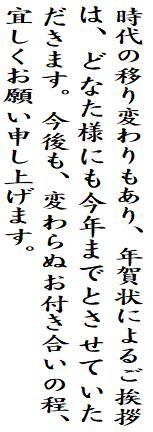 時代の移り変わりもあり、年賀状によるご挨拶
は、どなた様にも今年までとさせていた
だきます。今後も、変わらぬお付き合いの程、
宜しくお願い申し上げます。